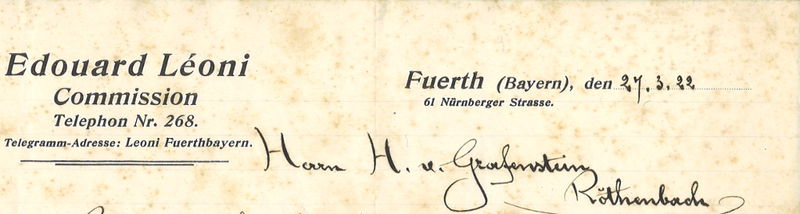 Edouard Léoni
Commission
Telephon Nr. 268.
Telegramm-Adresse: Leoni Fuerthbayern.
Fuerth (Bayern), den 27.3.22
61 Nürnberger Strasse.
Herrn H. v. Grafenstein
Röthenbach